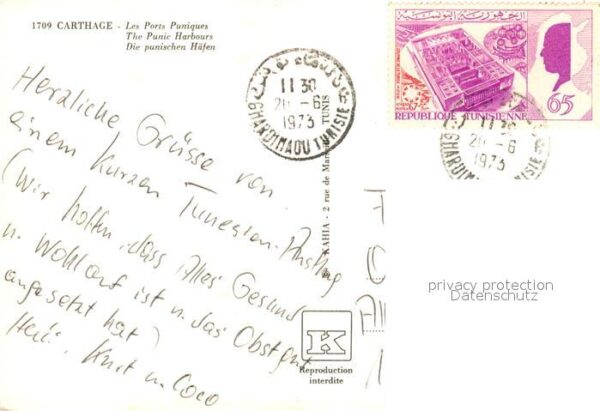 1709 CARTHAGE - Les Ports Puniques
The Punic Harbours
Die punischen Häfen
الجمهورية التونسية
65
REPUBLIQUE TUNISIENNE
11 30
20 -6
1973
GHARDIMAOU TUNISIE
11 30
20 -6
1973
Herzliche Grüsse von
einem kurzen Tunesien-Ausflug
(Wir hoffen, dass Alles Gesund
u. Wohlauf ist u. das Obst gut
angesetzt hat)
Kurt u. Coco
KAHIA - 2 rue de TUNIS
privacy protection
Datenschutz
K
Reproduction
interdite